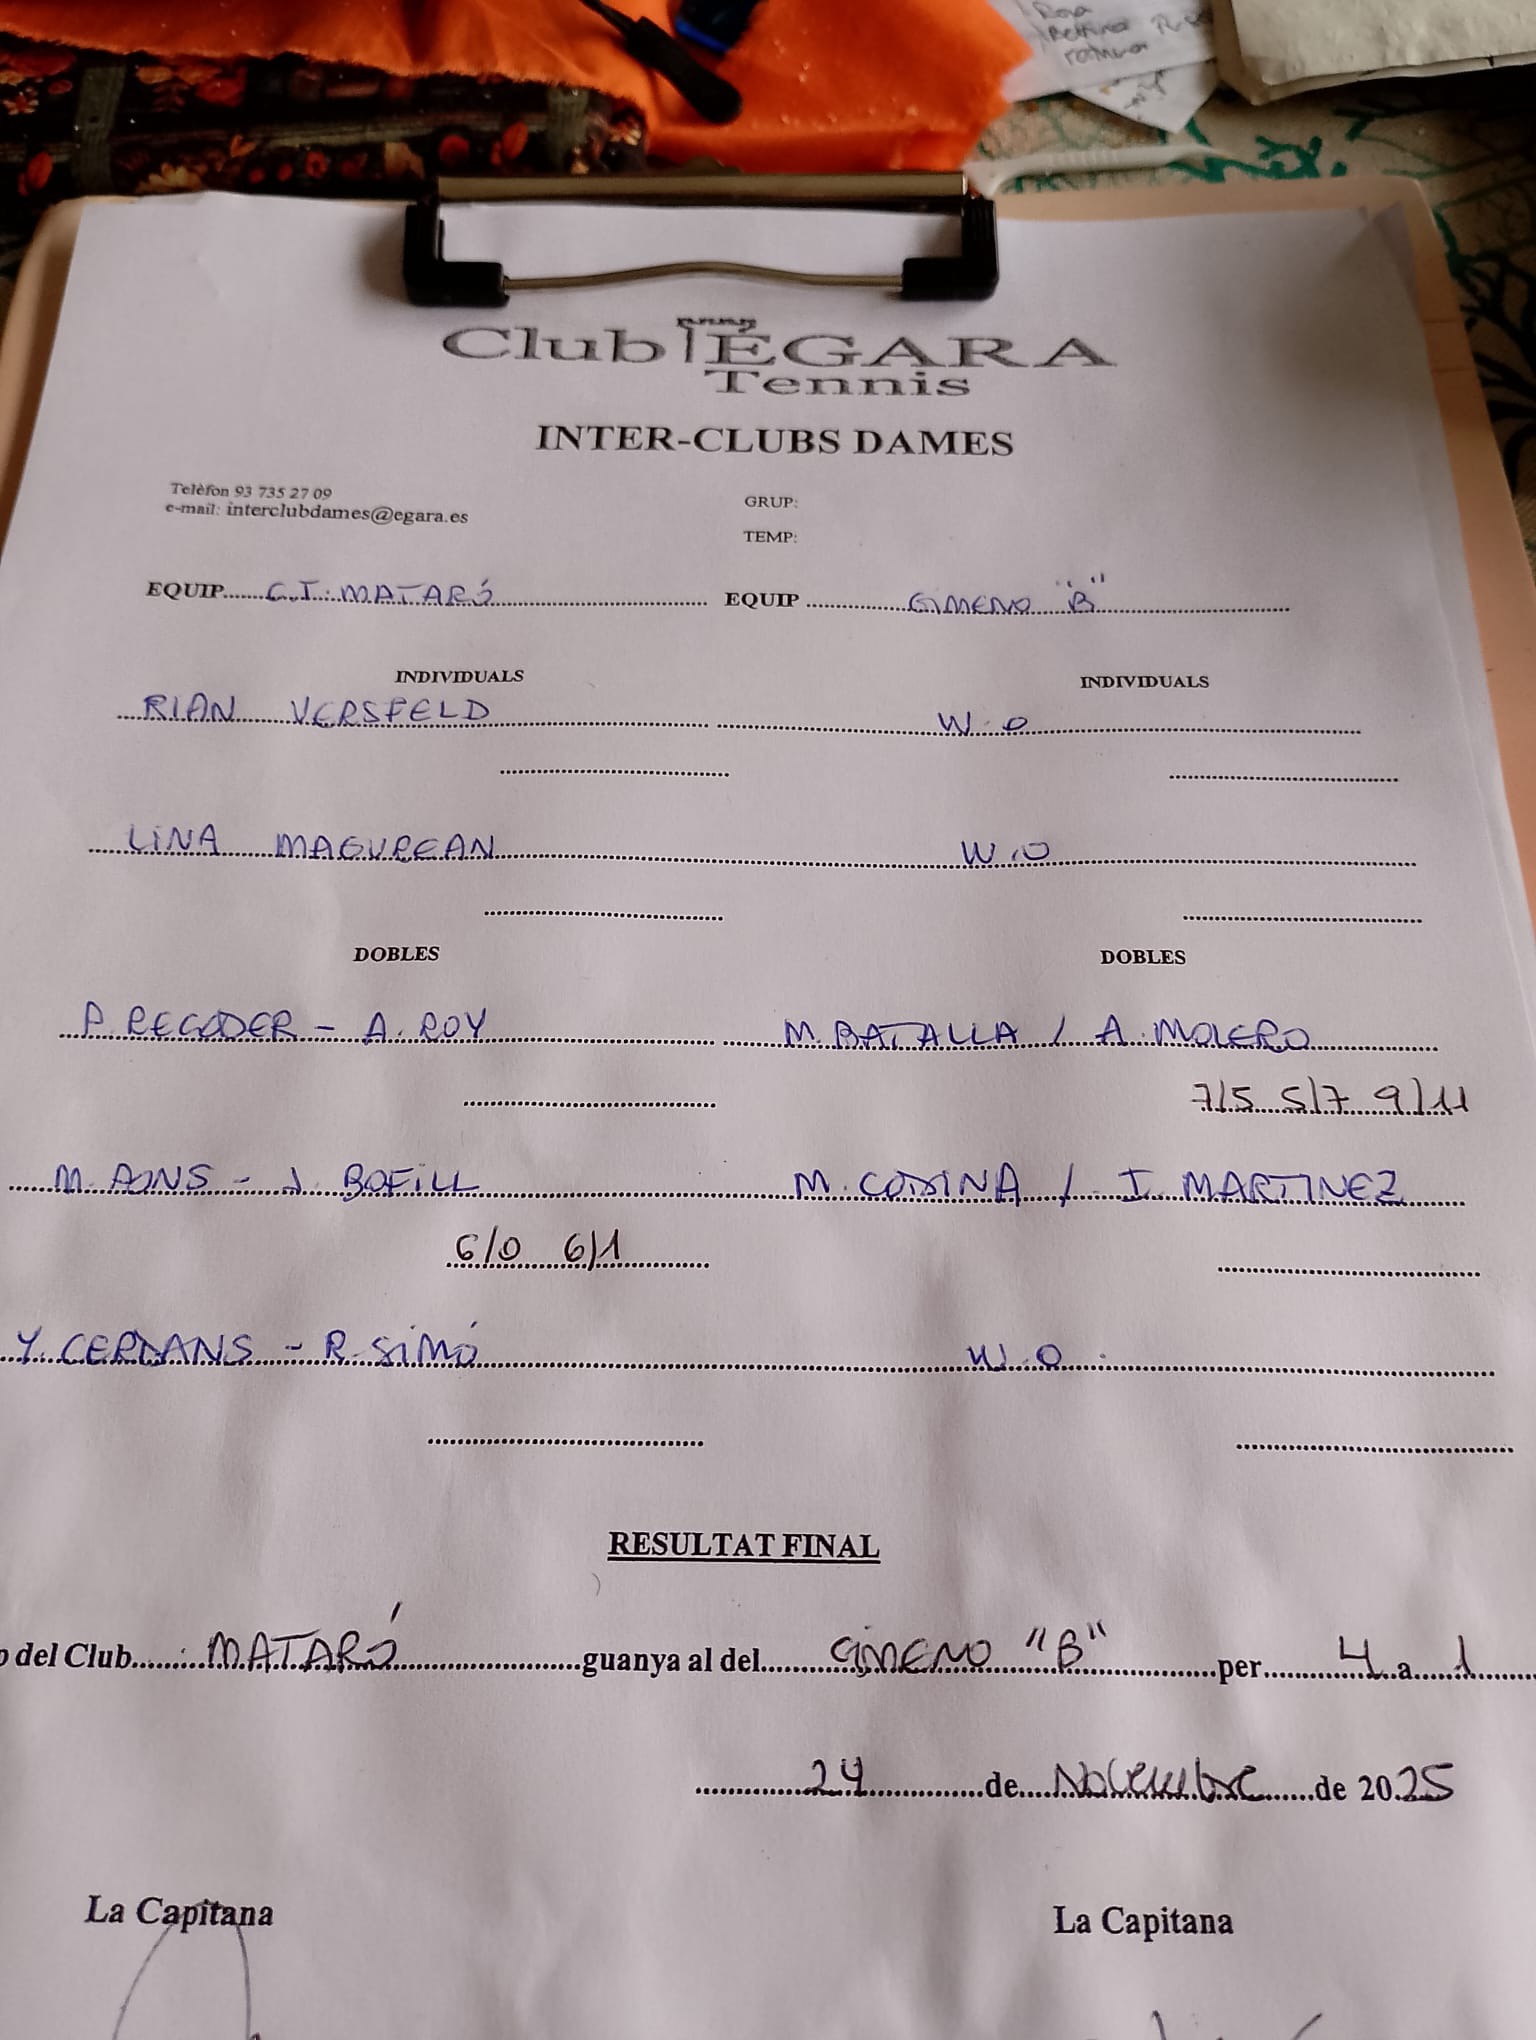 Rosa
Bettina
Club EGARA
Tennis
INTER-CLUBS DAMES
Telèfon 93 735 27 09
e-mail: interclubdames@egara.es
GRUP:
TEMP:
EQUIP...... C.T. MATARÓ ...... EQUIP ...... GIMENO "B" ......
INDIVIDUALS INDIVIDUALS
RIAN VERSFELD W.O
LINA MAGUREAN W.O
DOBLES DOBLES
P. REGODER - A. ROY M. BATALLA / A. MOLERO
7/5 5/7 9/11
M. PONS - J. BOFILL M. CODINA / I. MARTINEZ
6/0 6/1
Y. CERDANS - R. SIMÓ W.O.
RESULTAT FINAL
del Club...... MATARÓ ......guanya al del...... GIMENO "B" ......per...... 4 ...a... 1 ......
...... 24 ......de... Novembre ......de 2025
La Capitana La Capitana